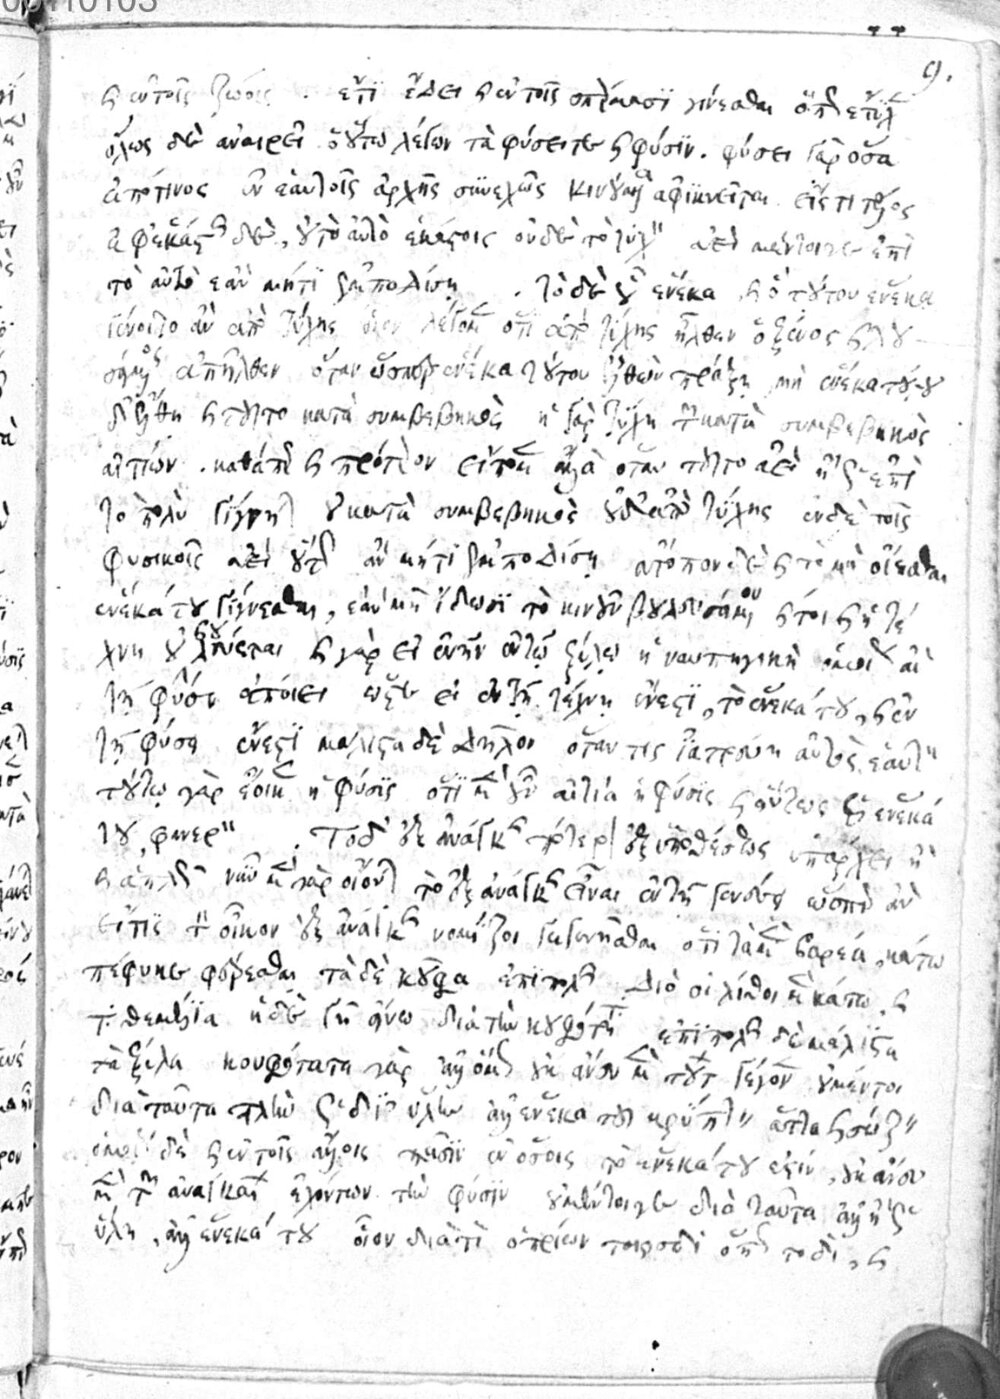 καὶ ἐν τοῖς ζώοις . ἔτι ἔδει καὶ ἐν τοῖς σπέρμασι γίνεσθαι ὅπως ἔτυχεν
ὅλως δὲ ἀναιρεῖ ὁ οὕτω λέγων τὰ φύσει τε καὶ φύσιν . φύσει γὰρ ὅσα
ἀπό τινος ἐν ἑαυτοῖς ἀρχῆς συνεχῶς κινούμενα ἀφικνεῖται εἴς τι τέλος
ἀφ' ἑκάστης δὲ, οὐ τὸ αὐτὸ ἑκάστοις οὐδὲ τὸ τυχὸν ἀεὶ μέντοιγε ἐπὶ
τὸ αὐτὸ ἐὰν μή τι ἐμποδίσῃ . τὸ δὲ οὗ ἕνεκα καὶ ὃ τούτου ἕνεκα
γένοιτο ἂν ἀπὸ τύχης οἷον λέγομεν ὅτι ἀπὸ τύχης ἦλθεν ὁ ξένος καὶ λου
σάμενος ἀπῆλθεν ὅταν ὥσπερ ἕνεκα τούτου ἐλθὼν πράξῃ μὴ ἕνεκα τούτου
δὲ ἔλθῃ καὶ τοῦτο κατὰ συμβεβηκὸς ἡ γὰρ τύχη τῶν κατὰ συμβεβηκὸς
αἰτίων . καθάπερ καὶ πρότερον εἴπομεν ἀλλὰ ὅταν τοῦτο ἀεὶ ἢ ὡς ἐπὶ
τὸ πολὺ γίγνηται οὐ κατὰ συμβεβηκὸς οὐδ' ἀπὸ τύχης ἐν δὲ τοῖς
φυσικοῖς ἀεὶ οὕτως ἂν μή τι ἐμποδίσῃ ἄτοπον δὲ καὶ τὸ μὴ οἴεσθαι
ἕνεκά του γίγνεσθαι, ἐὰν μὴ ἴδωσι τὸ κινοῦν βουλευσάμενον καίτοι καὶ ἡ τέ
χνη οὐ βουλεύεται καὶ γὰρ εἰ ἐνῆν ἐν τῷ ξύλῳ ἡ ναυπηγικὴ ὁμοίως ἂν
τῇ φύσει ἐποίει ὥστε εἰ ἐν τῇ τέχνῃ ἔνεστι, τὸ ἕνεκά του, καὶ ἐν
τῇ φύσει ἔνεστι μάλιστα δὲ δῆλον ὅταν τις ἰατρεύῃ αὐτὸς ἑαυτὸν
τούτῳ γὰρ ἔοικεν ἡ φύσις ὅτι μὲν οὖν αἰτία ἡ φύσις καὶ οὕτως ὡς ἕνεκά
του, φανερὸν . Τὸ δ' ἐξ ἀνάγκης πότερον ἐξ ὑποθέσεως ὑπάρχει ἢ
καὶ ἁπλῶς νῦν μὲν γὰρ οἴονται τὸ ἐξ ἀνάγκης εἶναι ἐν τῇ γενέσει ὥσπερ ἂν
εἴ τις τὸν οἶκον ἐξ ἀνάγκης νομίζοι γεγενῆσθαι ὅτι τὰ μὲν βαρέα κάτω
πέφυκε φέρεσθαι τὰ δὲ κοῦφα ἐπιπολῆς διὸ οἱ λίθοι μὲν κάτω, καὶ
τὰ θεμέλια ἡ δὲ γῆ ἄνω διὰ τὴν κουφότητα ἐπιπολῆς δὲ μάλιστα
τὰ ξύλα κουφότατα γὰρ ἀλλ' ὅμως οὐκ ἄνευ μὲν τούτων γέγονεν οὐ μέντοι
διὰ ταῦτα πλὴν ὡς δι' ὕλην ἀλλ' ἕνεκα τοῦ κρύπτειν ἄττα καὶ σώζειν
ὁμοίως δὲ καὶ ἐν τοῖς ἄλλοις πᾶσιν ἐν ὅσοις τὸ ἕνεκά του ἐστίν, οὐκ ἄνευ
μὲν τῶν ἀναγκαίων ἐχόντων τὴν φύσιν οὐ μέντοιγε διὰ ταῦτα ἀλλ' ἢ ὡς
ὕλη, ἀλλ' ἕνεκά του οἷον διὰ τί ὁ πρίων τοιοσδὶ ὅπως τοδὶ, καὶ